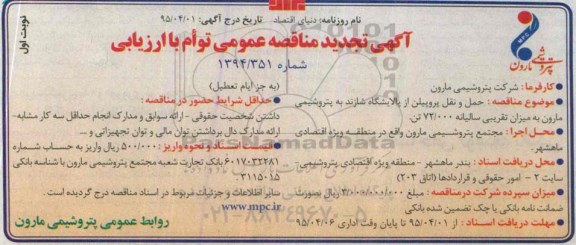 نام روزنامه: دنیای اقتصاد    تاریخ درج آگهی: ۹۵/۰۴/۰۱
نوبت اول
آگهی تجدید مناقصه عمومی توأم با ارزیابی
شماره ۱۳۹۴/۳۵۱
پتروشیمی مارون
(به جز ایام تعطیل)
● کارفرما: شرکت پتروشیمی مارون
● موضوع مناقصه: حمل و نقل پروپیلن از پالایشگاه شازند به پتروشیمی
مارون به میزان تقریبی سالیانه ۷۲/۰۰۰ تن.
● محل اجرا: مجتمع پتروشیمی مارون واقع در منطقه ویژه اقتصادی
ماهشهر.
● محل دریافت اسناد: بندر ماهشهر - منطقه ویژه اقتصادی پتروشیمی-
سایت ۲ - امور حقوقی و قراردادها (اتاق ۲۰۳)
● میزان سپرده شرکت در مناقصه: مبلغ ریال بصورت
ضمانت نامه بانکی یا چک تضمین شده بانکی
● مهلت دریافت اسناد: از ۹۵/۰۴/۰۱ تا پایان وقت اداری ۹۵/۰۴/۰۶
● حداقل شرایط حضور در مناقصه:
داشتن شخصیت حقوقی - ارائه سوابق و مدارک انجام حداقل سه کار مشابه-
ارائه مدارک دال برداشتن توان مالی و توان تجهیزاتی و ...
● اسناد و نحوه واریز: ۵۰۰/۰۰۰ ریال واریز به حساب شماره
۶۰۱۷۰۳۲۴۸۱ بانک تجارت شعبه مجتمع پتروشیمی مارون با شناسه بانکی
۳۱۱۵۰۱۵
سایر اطلاعات و جزئیات مربوط در اسناد مناقصه درج گردیده است.
www.mpc.ir
روابط عمومی پتروشیمی مارون
۰۲۱-۸۸۳۴۹۶۷۰-۵